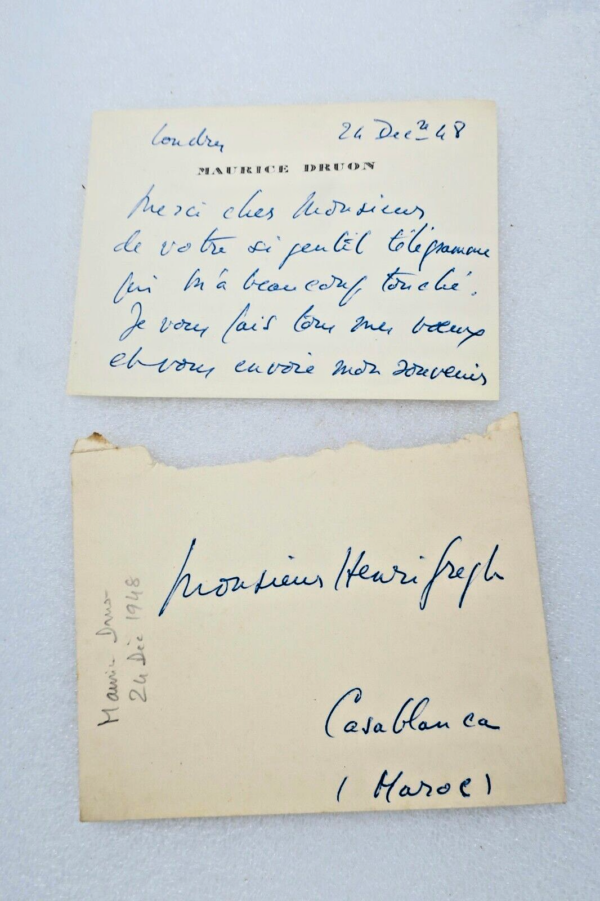 Londres 24 Dec 48
MAURICE DRUON
Merci cher Monsieur
de votre si gentil télégramme
qui m'a beaucoup touché.
Je vous fais tous mes vœux
et vous envoie mon souvenir
Monsieur Henri Gregh
Casablanca
(Maroc)
Maurice Druon
24 Déc 1948